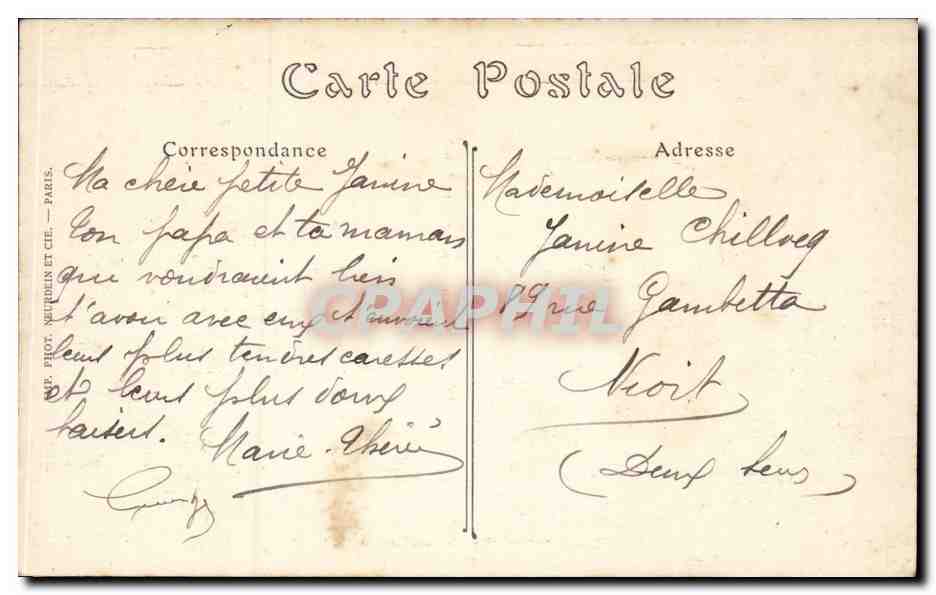 Carte Postale
Correspondance
Adresse
IMP. PHOT. NEURDEIN ET CIE. — PARIS.
Ma chère petite Janine
Ton papa et ta maman
qui voudraient bien
t'avoir avec eux t'envoient
leurs plus tendres caresses
et leurs plus doux
baisers. Marie-Thérèse
Mademoiselle
Janine Chillocq
89 rue Gambetta
Niort
(Deux Sevres)
CPAPHIL